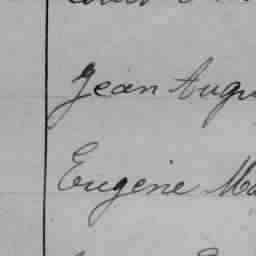 Jean Augu
Eugène Ma